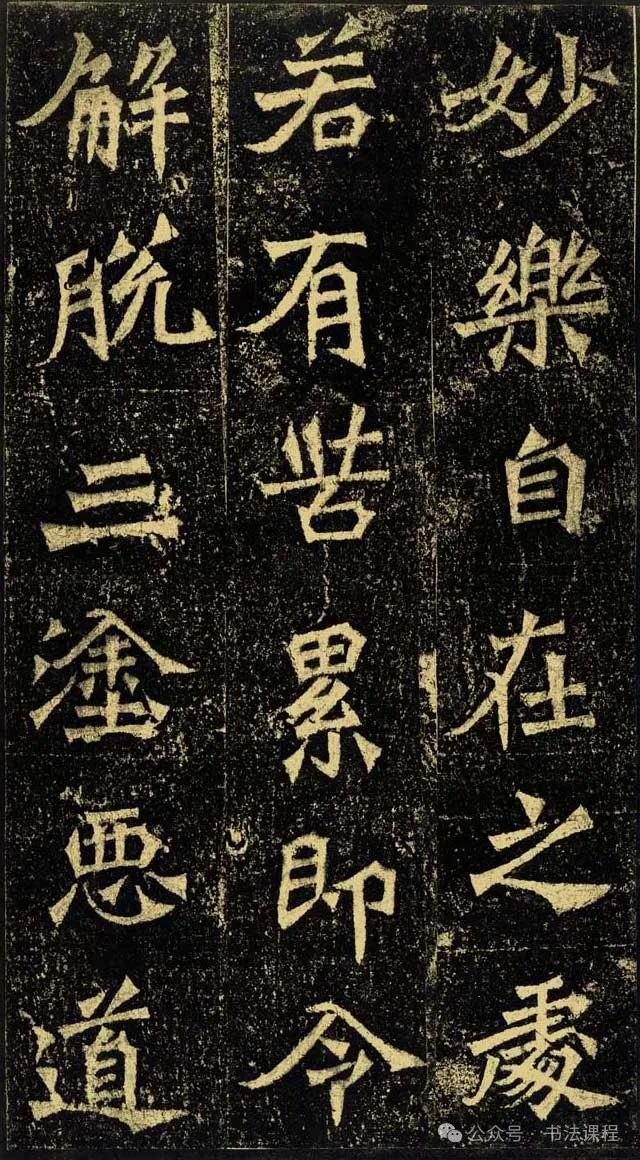 妙樂自在之處
若有苦累即令
解脱三塗惡道
公众号 · 书法课程